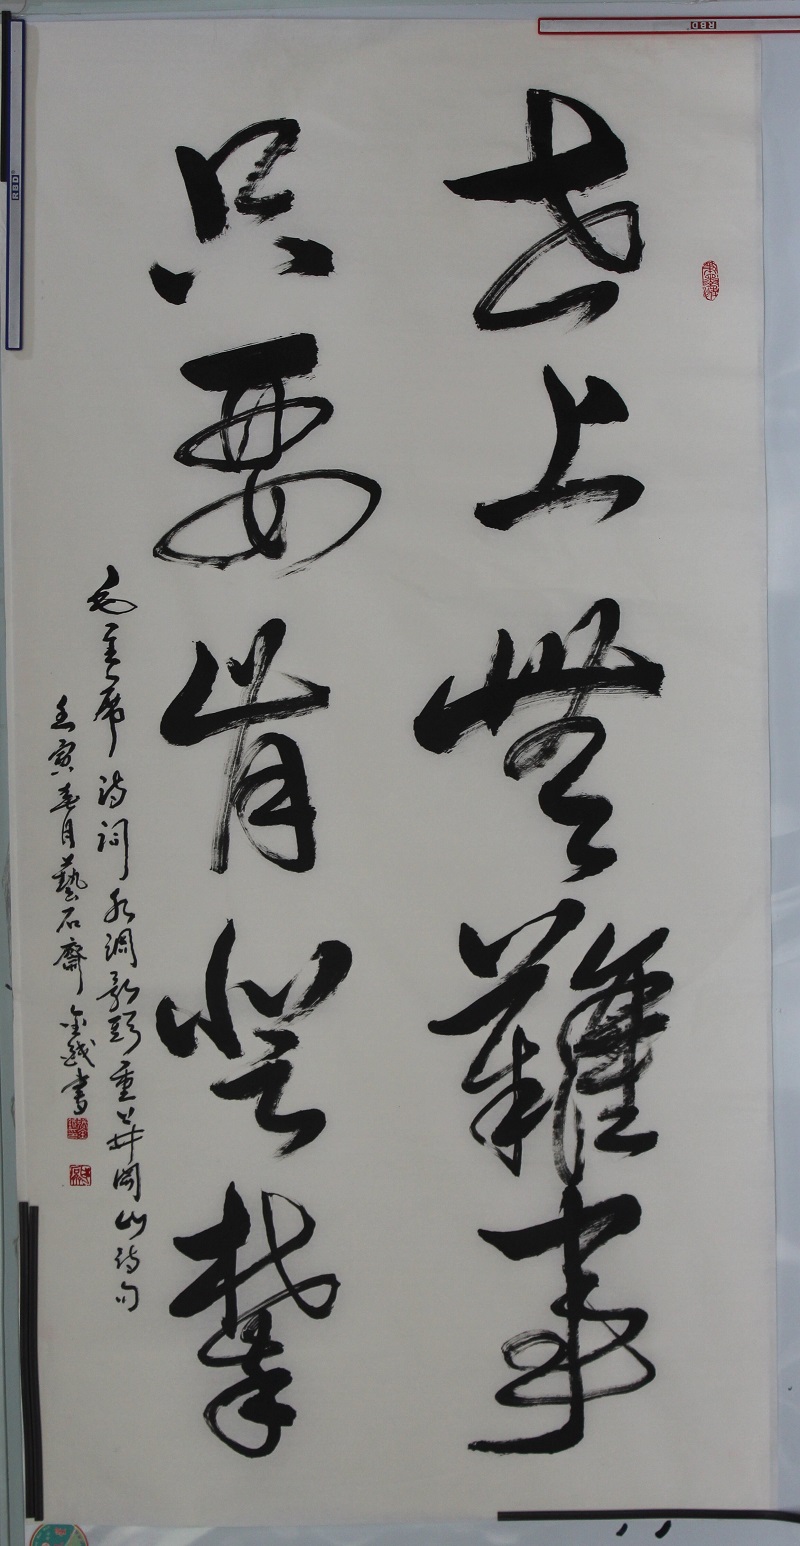 世上無難事
只要肯登攀
毛主席詩詞水調歌頭重上井岡山詩句
壬寅春月藝石齋金城書
RBD
RBD